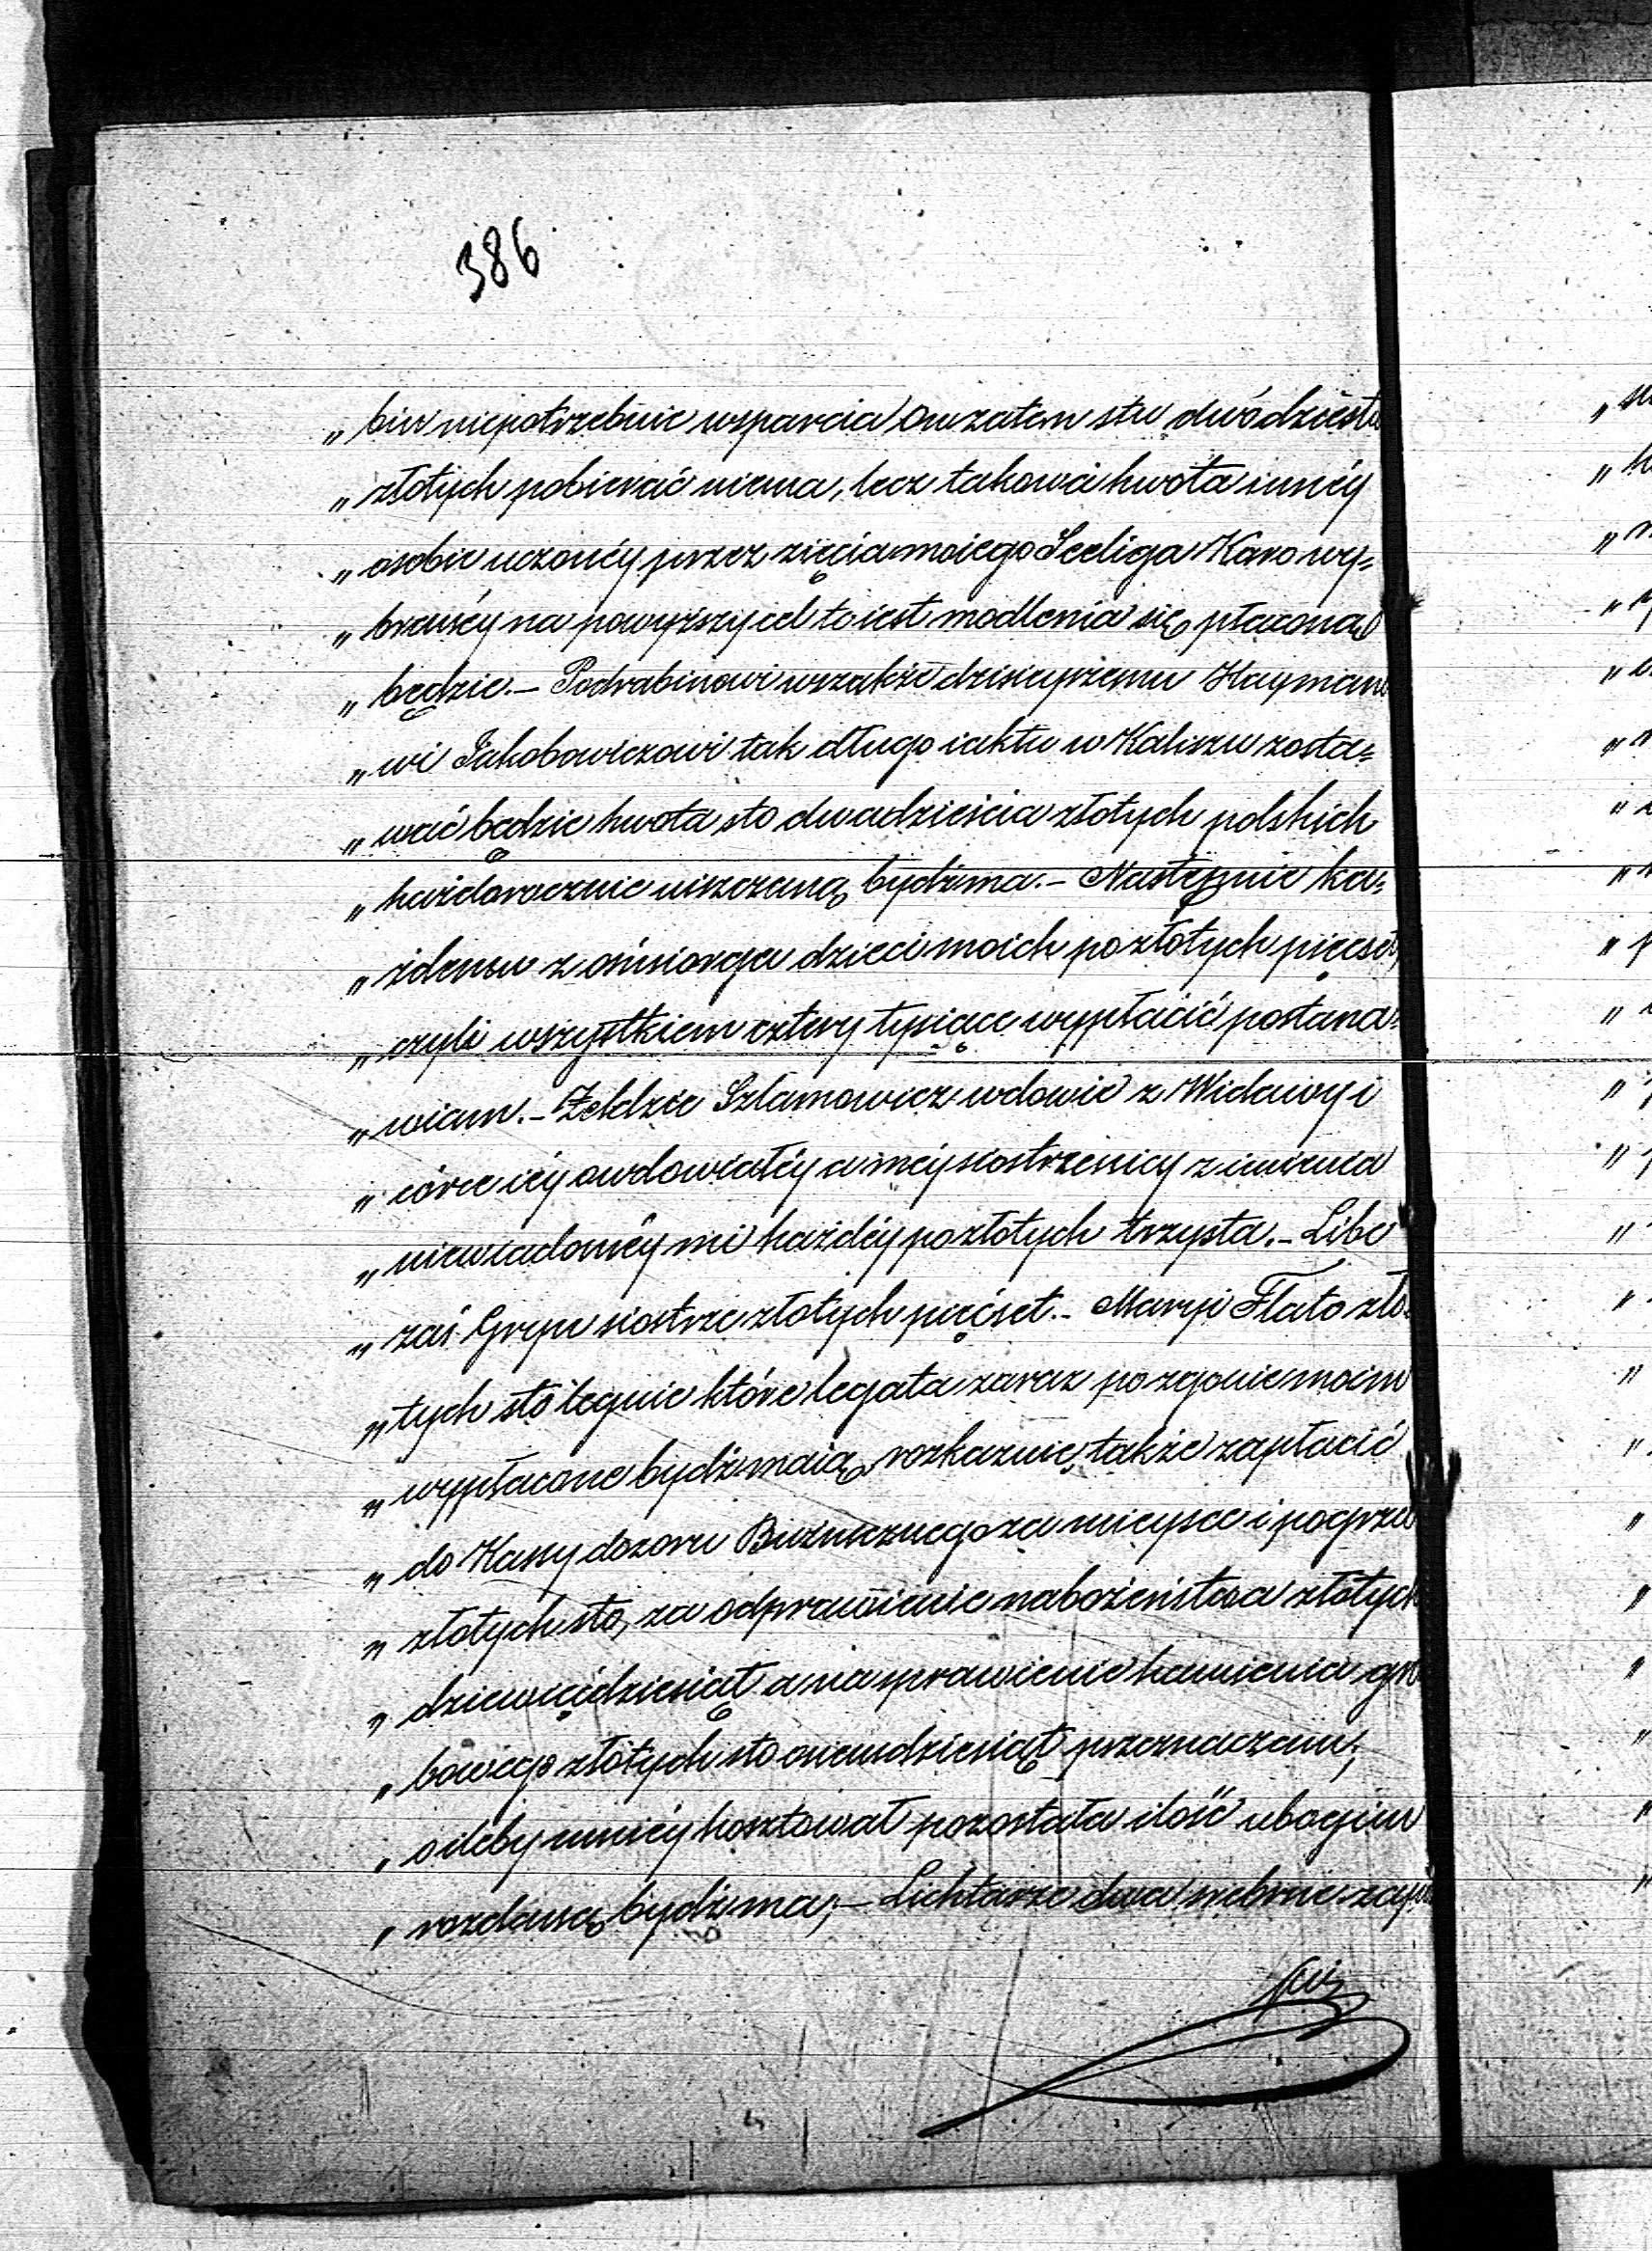 386
„ biu niepotrzebuie wsparcia on zatem stu dwódziestu
„ złotych pobierać niema, lecz takowa kwota innéy
„ osobie uczonéy przez zięcia moiego Seeliga Karo wy=
„ branéy na powyższy cel to iest modlenia się płacona
„ będzie. – Podrabinowi wszakże dzisieyszemu Haymano
„ wi Jakobowiczowi tak długo iak tu w Kaliszu zosta=
„ wać będzie kwota sto dwadzieścia złotych polskich
„ każdorocznie uiszczaną bydź ma. – Następnie ka=
„ żdemu z ośmiorga dzieci moich po złotych pięcset,
„ czyli wszystkiem cztery tysiące wypłacić postana=
„ wiam. – Zeldzie Szlamowicz wdowie z Widawy i
„ córce iéy owdowiałéy a méy siostrzenicy z imienia
„ niewiadoméy mi każdéy po złotych trzysta. – Libe
„ zaś Gryn siostrze złotych pięćset. – Maryi Flato zło=
„ tych sto leguie które legata zaraz po zgonie moim
„ wypłacone bydź maią, rozkazuię także zapłacić
„ do Kassy dozoru Bużnicznego za mieysce i pogrzeb
„ złotych sto, za odprawienie nabożeństwa złotych
„ dziewięćdziesiąt a na sprawienie kamienia gro
„ bowego złotych sto osiemdziesiąt przeznaczam,
„ o ileby mniéy kosztował pozostała ilość ubogim
„ rozdaną bydź ma; – Lichtarze dwa srebrne